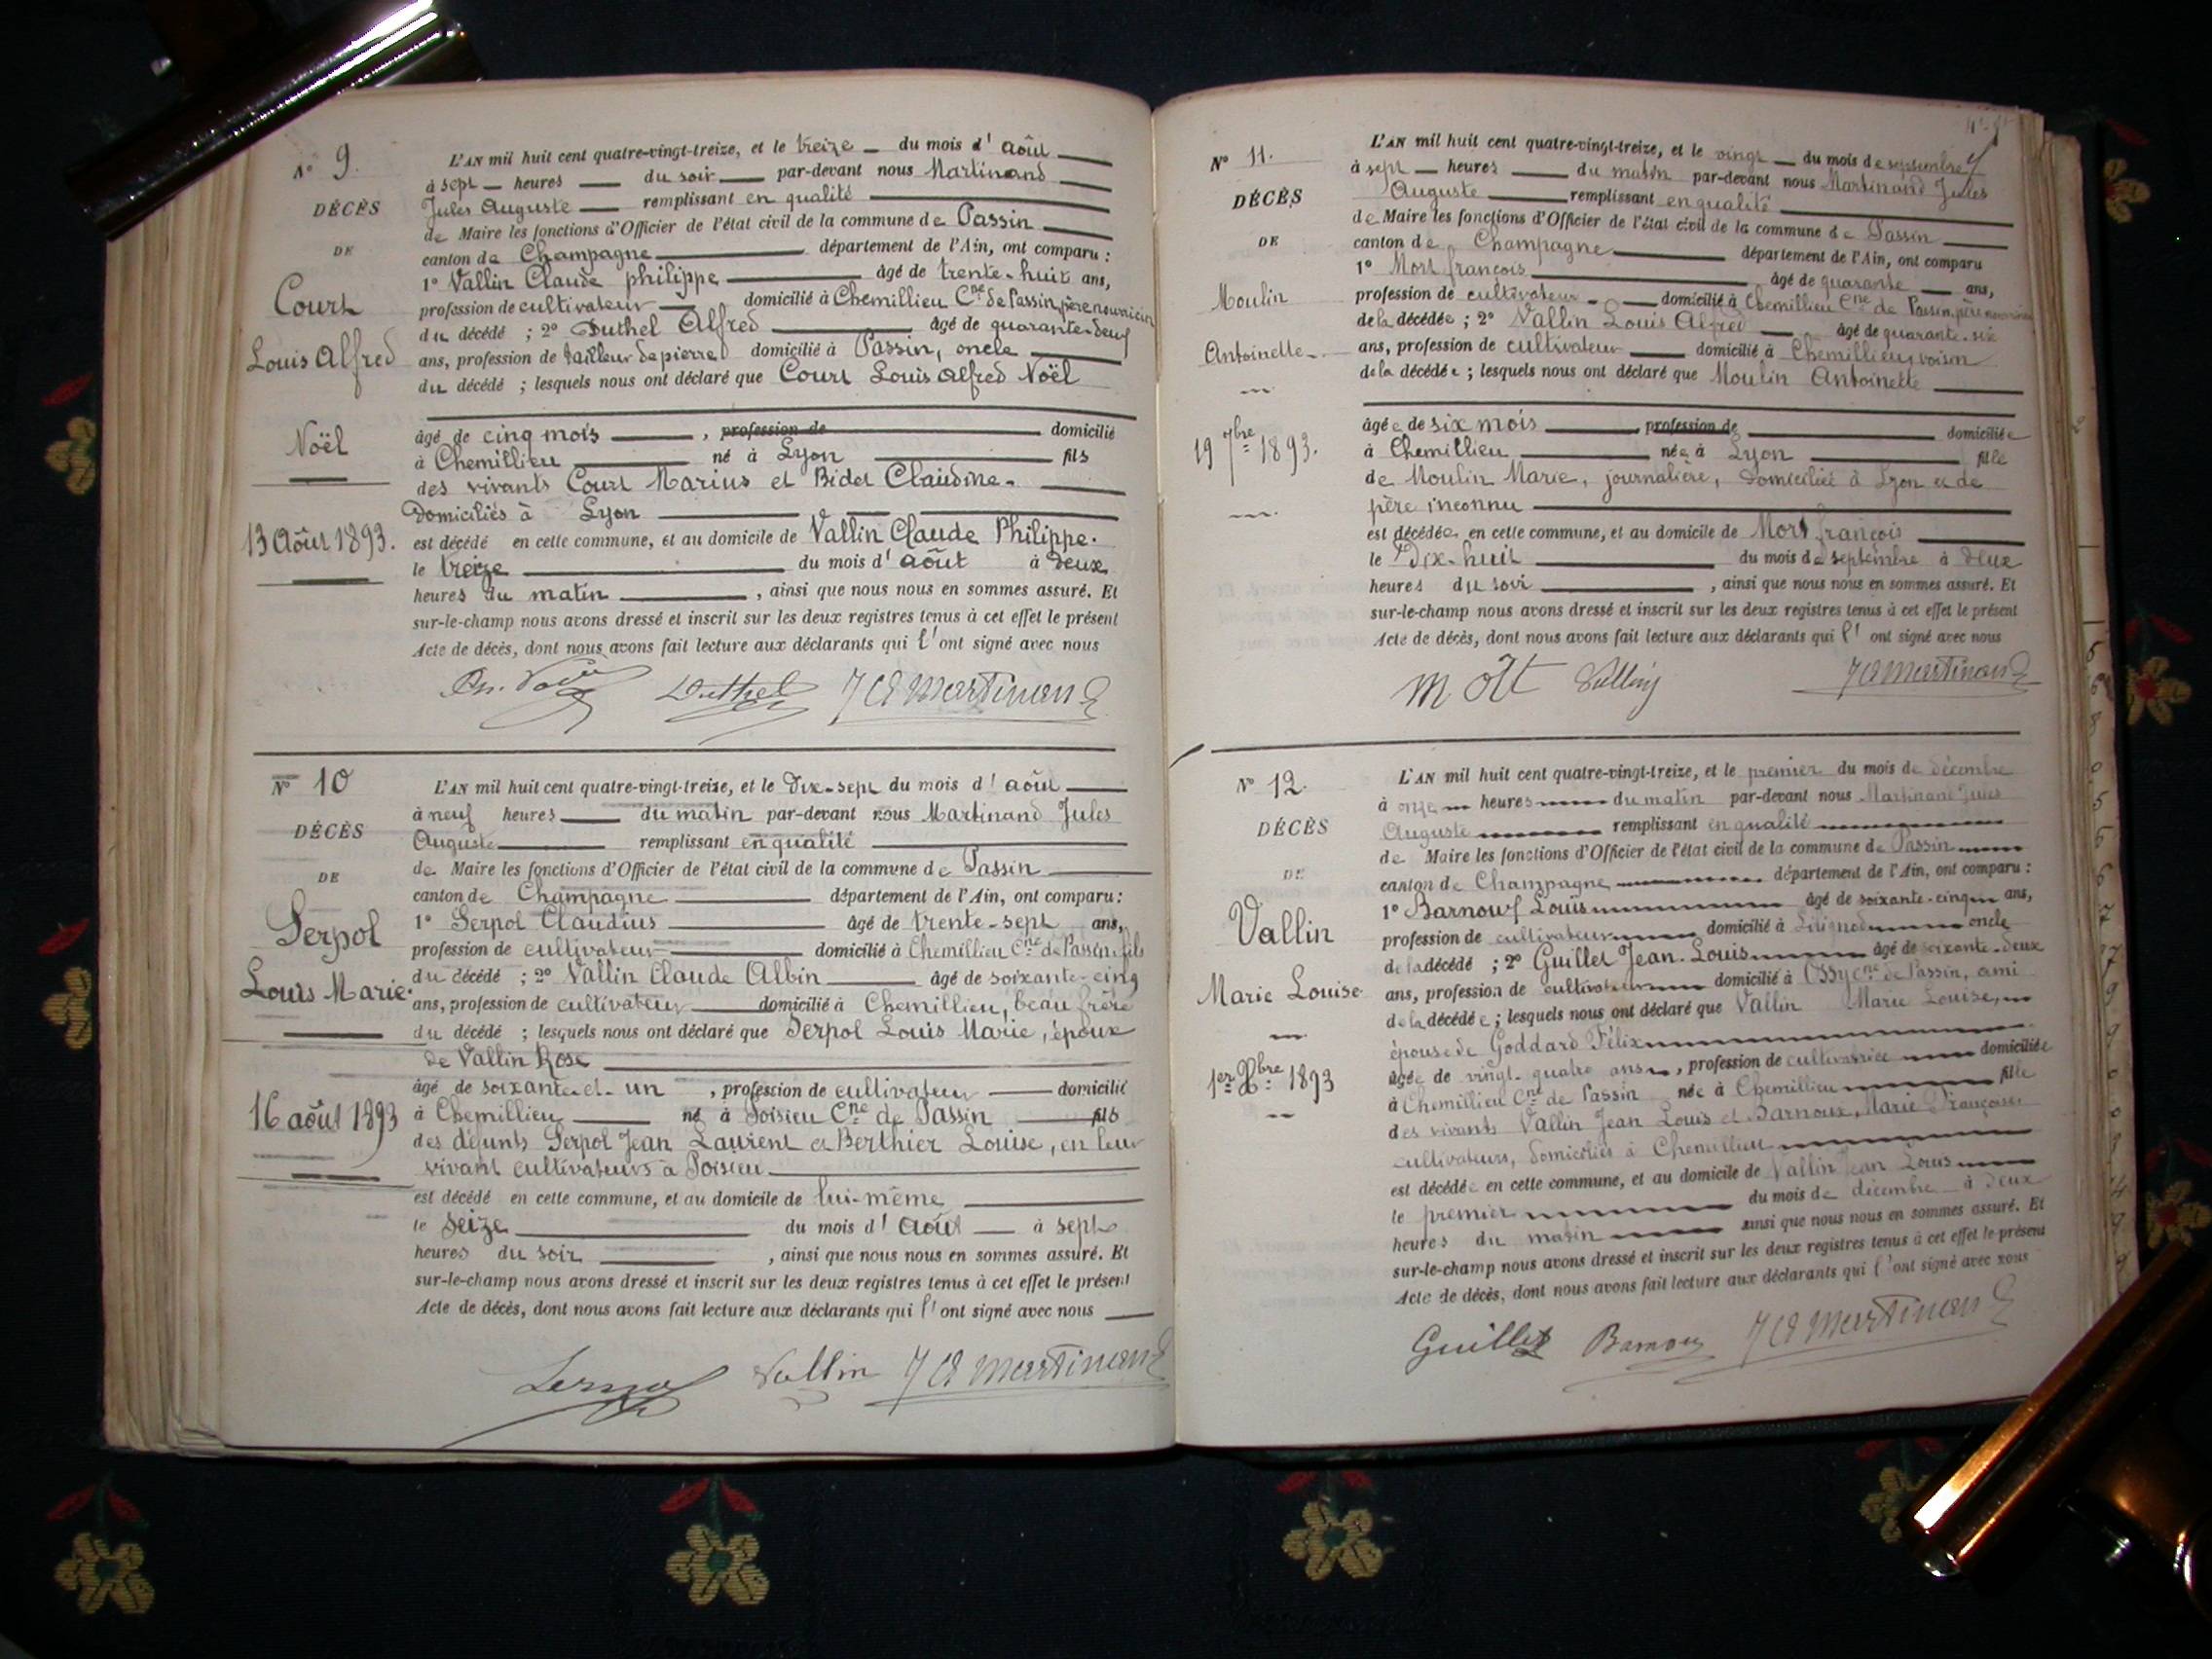 N° 9.
DÉCÈS
DE
Court
Louis Alfred
Noël
13 Août 1893.
L'AN mil huit cent quatre-vingt-treize, et le treize du mois d'août
à sept heures du soir par-devant nous Martinand
Jules Auguste remplissant en qualité
de Maire les fonctions d'Officier de l'état civil de la commune de Passin
canton de Champagne département de l'Ain, ont comparu :
1° Vallin Claude philippe âgé de trente-huit ans,
profession de cultivateur domicilié à Chemillieu Cne de Passin, père nourricier
du décédé ; 2° Duthel Alfred âgé de quarante-deux
ans, profession de tailleur de pierre domicilié à Passin, oncle
du décédé ; lesquels nous ont déclaré que Court Louis Alfred Noël
âgé de cinq mois , profession de domicilié
à Chemillieu né à Lyon fils
des vivants Court Marius et Bidet Claudine.
Domiciliés à Lyon
est décédé en cette commune, et au domicile de Vallin Claude Philippe.
le treize du mois d'août à deux
heures du matin , ainsi que nous nous en sommes assuré. Et
sur-le-champ nous avons dressé et inscrit sur les deux registres tenus à cet effet le présent
Acte de décès, dont nous avons fait lecture aux déclarants qui l'ont signé avec nous
Duthel JA Martinand
N° 10
DÉCÈS
DE
Serpol
Louis Marie.
16 août 1893
L'AN mil huit cent quatre-vingt-treize, et le Dix-sept du mois d'août
à neuf heures du matin par-devant nous Martinand Jules
Auguste remplissant en qualité
de Maire les fonctions d'Officier de l'état civil de la commune de Passin
canton de Champagne département de l'Ain, ont comparu :
1° Serpol Claudius âgé de trente-sept ans,
profession de cultivateur domicilié à Chemillieu Cne de Passin, fils
du décédé ; 2° Vallin Claude Albin âgé de soixante-cinq
ans, profession de cultivateur domicilié à Chemillieu, beau frère
du décédé ; lesquels nous ont déclaré que Serpol Louis Marie, époux
de Vallin Rose
âgé de soixante-et-un , profession de cultivateur domicilié
à Chemillieu né à Poisieu Cne de Passin fils
des défunts Serpol Jean Laurent et Berthier Louise, en leur
vivant cultivateurs à Poisieu
est décédé en cette commune, et au domicile de lui-même
le seize du mois d'août à sept
heures du soir , ainsi que nous nous en sommes assuré. Et
sur-le-champ nous avons dressé et inscrit sur les deux registres tenus à cet effet le présent
Acte de décès, dont nous avons fait lecture aux déclarants qui l'ont signé avec nous
Vallin JA Martinand
N° 11.
DÉCÈS
DE
Moulin
Antoinette
19 7bre 1893.
L'AN mil huit cent quatre-vingt-treize, et le vingt du mois de septembre
à sept heures du matin par-devant nous Martinand Jules
Auguste remplissant en qualité
de Maire les fonctions d'Officier de l'état civil de la commune de Passin
canton de Champagne département de l'Ain, ont comparu
1° Mort françois âgé de quarante ans,
profession de cultivateur domicilié à Chemillieu Cne de Passin, père nourricier
de la décédée ; 2° Vallin Louis Alfred âgé de quarante-six
ans, profession de cultivateur domicilié à Chemillieu, voisin
de la décédée ; lesquels nous ont déclaré que Moulin Antoinette
âgée de six mois , profession de domiciliée
à Chemillieu née à Lyon fille
de Moulin Marie, journalière, Domiciliée à Lyon et de
père inconnu
est décédée en cette commune, et au domicile de Mort françois
le Dix-huit du mois de septembre à deux
heures du soir , ainsi que nous nous en sommes assuré. Et
sur-le-champ nous avons dressé et inscrit sur les deux registres tenus à cet effet le présent
Acte de décès, dont nous avons fait lecture aux déclarants qui l'ont signé avec nous
Mort Vallin JA Martinand
N° 12.
DÉCÈS
DE
Vallin
Marie Louise
1er Xbre 1893
L'AN mil huit cent quatre-vingt-treize, et le premier du mois de décembre
à onze heures du matin par-devant nous Martinand Jules
Auguste remplissant en qualité
de Maire les fonctions d'Officier de l'état civil de la commune de Passin
canton de Champagne département de l'Ain, ont comparu :
1° Barnoux Louis âgé de soixante-cinq ans,
profession de cultivateur domicilié à oncle
de la décédé ; 2° Guillet Jean-Louis âgé de soixante-deux
ans, profession de cultivateur domicilié à Ossy cne de Passin, ami
de la décédée ; lesquels nous ont déclaré que Vallin Marie Louise,
épouse de Goddard Félix
âgée de vingt-quatre ans , profession de cultivatrice domiciliée
à Chemillieu Cne de Passin née à Chemillieu fille
des vivants Vallin Jean Louis et Barnoux, Marie Françoise
cultivateurs, domiciliés à Chemillieu
est décédée en cette commune, et au domicile de Vallin Jean Louis
le premier du mois de décembre à deux
heures du matin ainsi que nous nous en sommes assuré. Et
sur-le-champ nous avons dressé et inscrit sur les deux registres tenus à cet effet le présent
Acte de décès, dont nous avons fait lecture aux déclarants qui l'ont signé avec nous
Guillet Barnoux JA Martinand